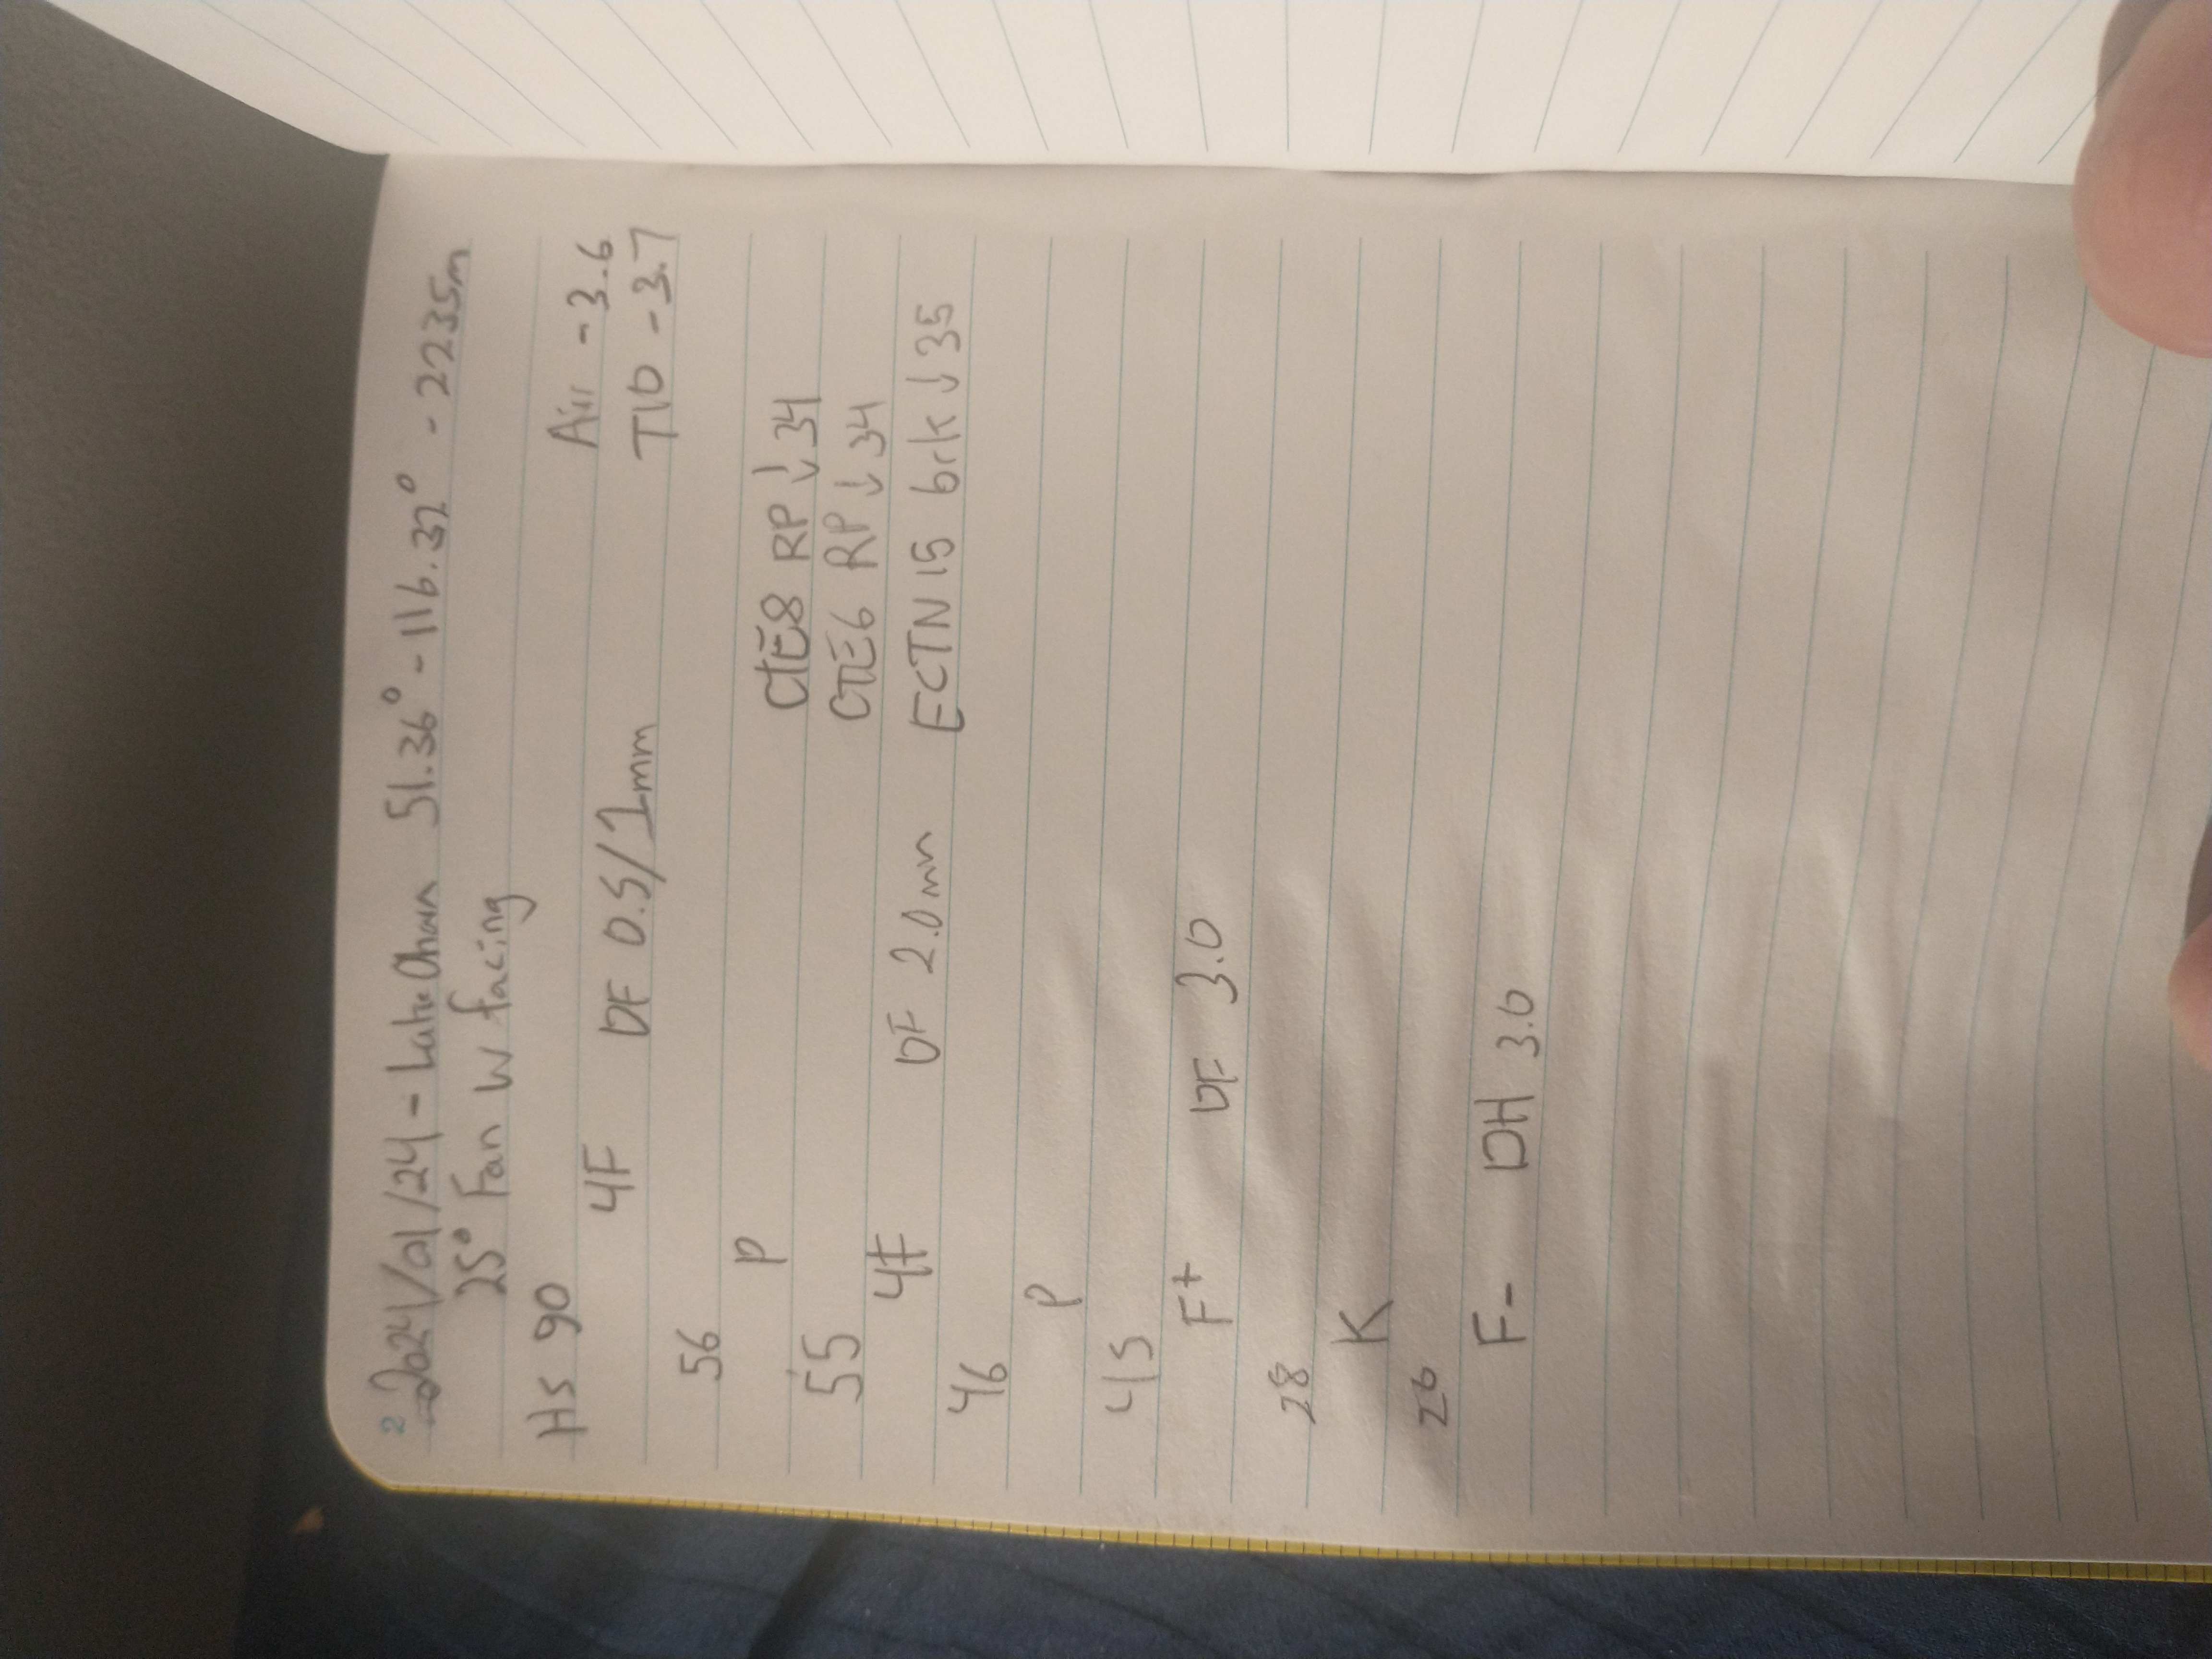 2
2024/01/24 - Lake Ohara 51.36° -116.32° - 2235m
25° Fan W facing
HS 90
Air -3.6
4F DF 0.5/1mm T10 -3.7
56
P CTE8 RP ↓34
55 CTE6 RP ↓34
4F DF 2.0mm ECTN15 brk ↓35
46
P
45
F+ DF 3.0
28
K
26
F- DH 3.0